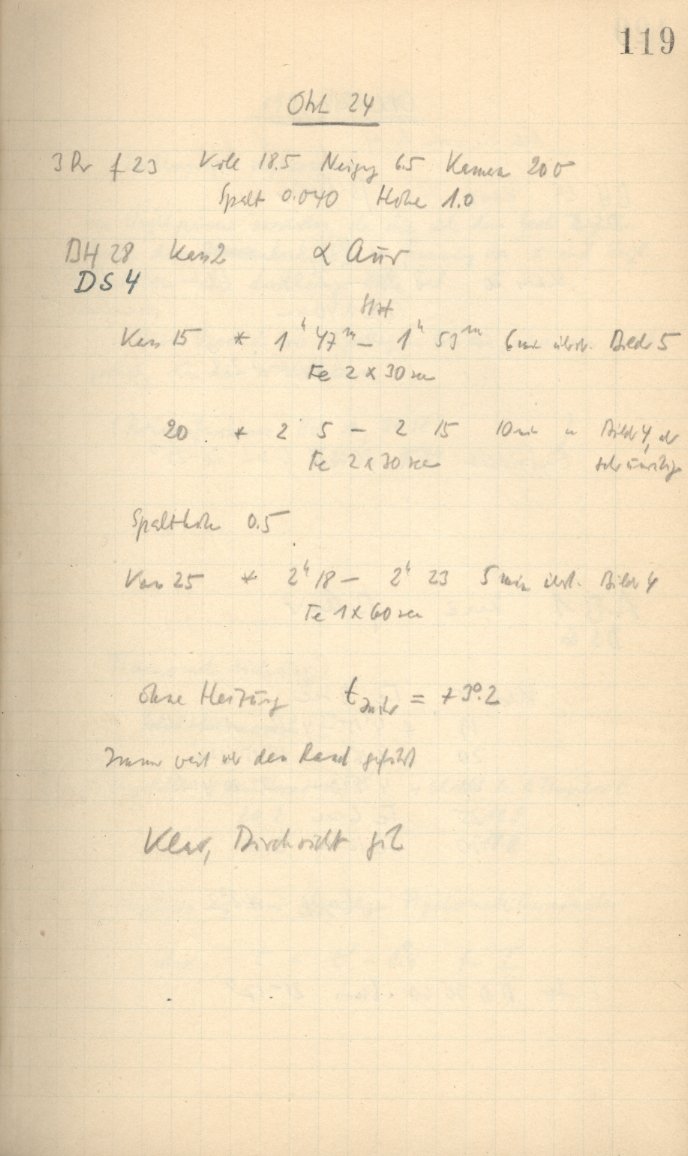 119
Okt 24
3 Pr f 23 Koll 18.5 Neigg 6.5 Kamera 200
Spalt 0.040 Höhe 1.0
BH 28 Kass 2 α Aur
DS 4
Kass 15 * 1ʰ 47ᵐ – 1ʰ 53ᵐ 6 min Bilder 5
Fe 2 x 30 sec
20 * 2 5 – 2 15 10 min Bild 4,
Fe 2 x 30 sec
Spalthöhe 0.5
25 * 2ʰ 18 – 2ʰ 23 5 min Bilder 4
Fe 1 x 60 sec
ohne Heizung t = +3°.2
Immer weit den Rand geführt
Klar, Durchsicht gut